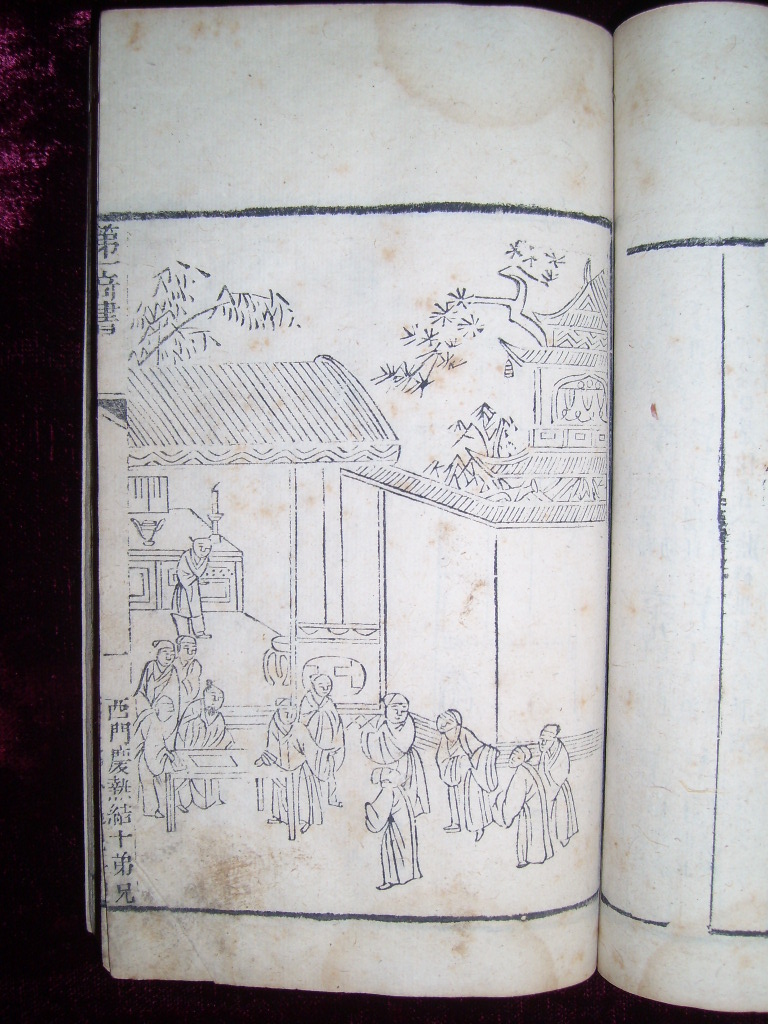 第一奇書
一
西門慶熱結十弟兄